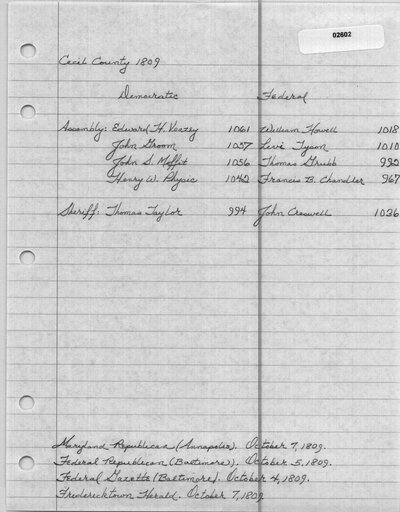 02602
Cecil County 1809
Democratic Federal
Assembly: Edward H. Veazey 1061 William Howell 1018
John Groom 1057 Levi Tyson 1010
John S. Moffit 1056 Thomas Grubb 992
Henry W. Physic 1042 Francis B. Chandler 967
Sheriff: Thomas Taylor 994 John Creswell 1036
Maryland Republican (Annapolis). October 7, 1809.
Federal Republican (Baltimore). October 5, 1809.
Federal Gazette (Baltimore). October 4, 1809.
Fredericktown Herald. October 7, 1809